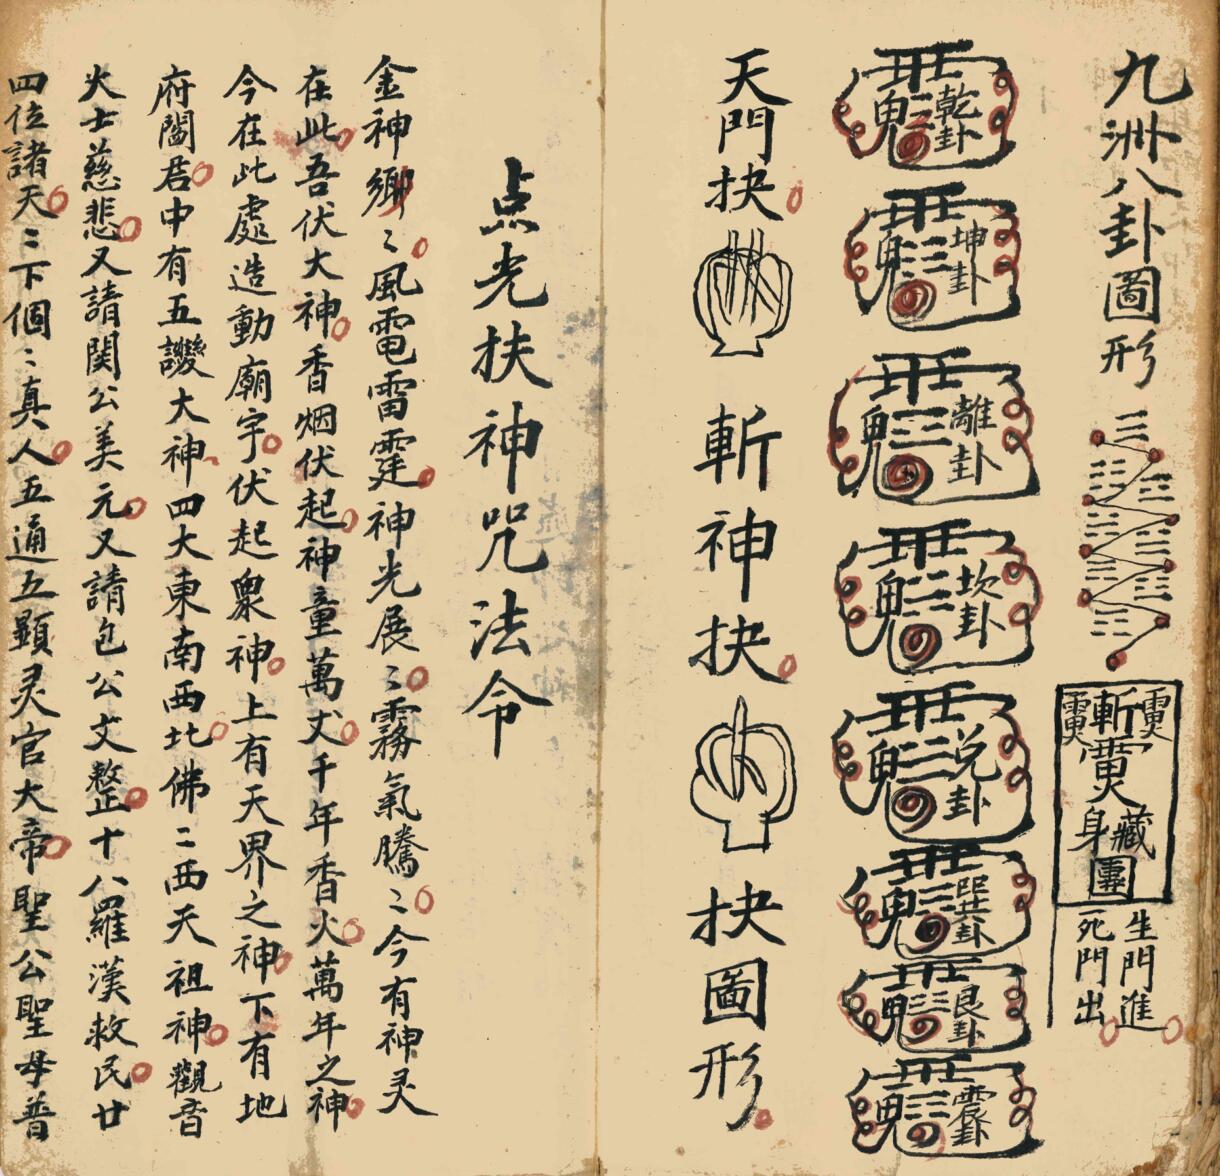 九洲八卦圖形
斬
藏身
生門進
死門出
乾卦
坤卦
離卦
坎卦
兑卦
巽卦
艮卦
震卦
天門抉
斬神抉
抉圖形
点光扶神咒法令
金神鄉〻風電雷霆神光展〻霧氣騰〻今有神灵
在此吾伏大神香烟伏起神童萬丈千年香火萬年之神
今在此處造動廟宇伏起衆神上有天界之神下有地
府閻君中有五讕大神四大東南西北佛〻西天祖神觀音
火士慈悲又請関公美元又請包公文整十八羅漢救民廿
四位諸天〻下個〻真人五通五顯灵官大帝聖公聖母普